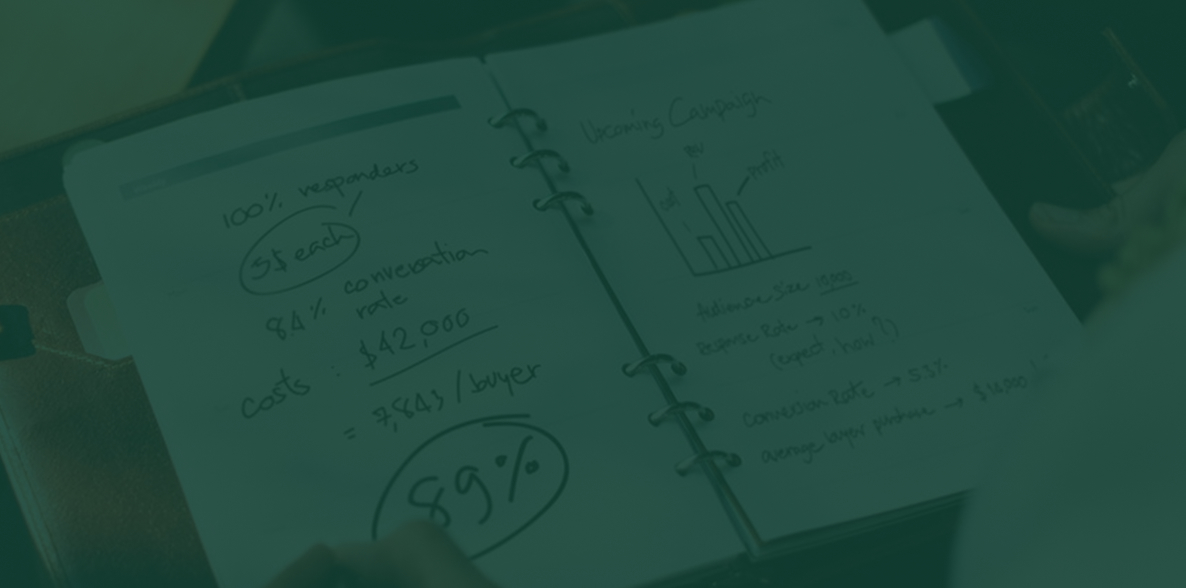 100% responders
5$ each
84% conversation
rate
costs : $42,000
= 7,843 / buyer
89%
Upcoming Campaign
profit
Audience size 10,000
Response Rate → 10%
(expect, how?)
Conversion Rate → 53%
average buyer purchase →